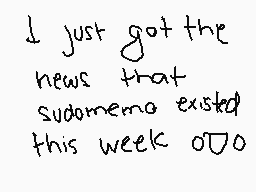 I just got the
news that
sudomemo existed
this week o▽o